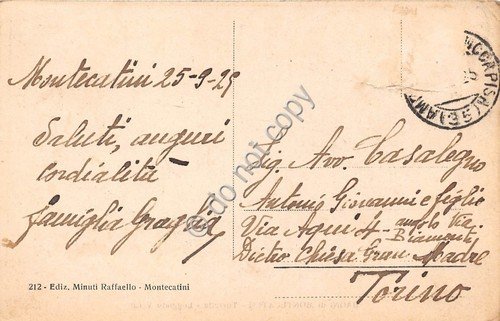 Montecatini 25-9-29
Saluti, auguri
cordialità
famiglia
Sig. Avv. Casalegno
Antonio Giovanni e figlio
Via 4 angolo Via
Dietro Chiesa Gran Madre
Torino
212 - Ediz. Minuti Raffaello - Montecatini
do not copy